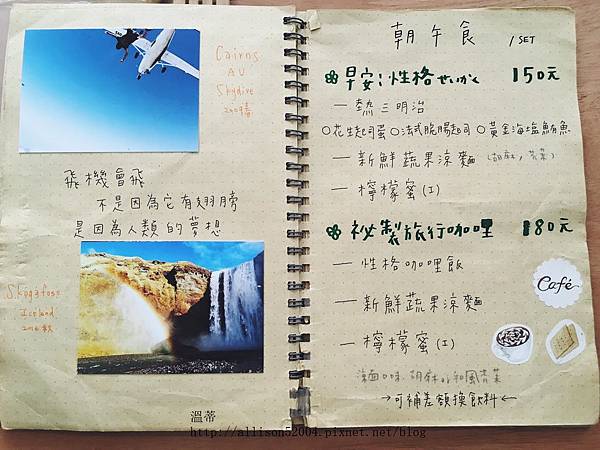 Cairns
AU
Skydive
2009春
飛機會飛
不是因為它有翅膀
是因為人類的夢想
Skogafoss
Iceland
2016秋
溫蒂
朝午食 1/SET
早安!性格せいかく 150元
一熱三明治
○花生起司蛋○法式脆腸起司○黃金海塩鮪魚
一新鮮蔬果涼麵(胡麻,芥菜)
一檸檬蜜(I)
祕製旅行咖哩 180元
一性格咖哩飯
一新鮮蔬果涼麵
一檸檬蜜(I)
Café
涼麵口味:胡麻or和風芥菜
→可補差額換飲料←
http://allison52004.pixnet.net/blog